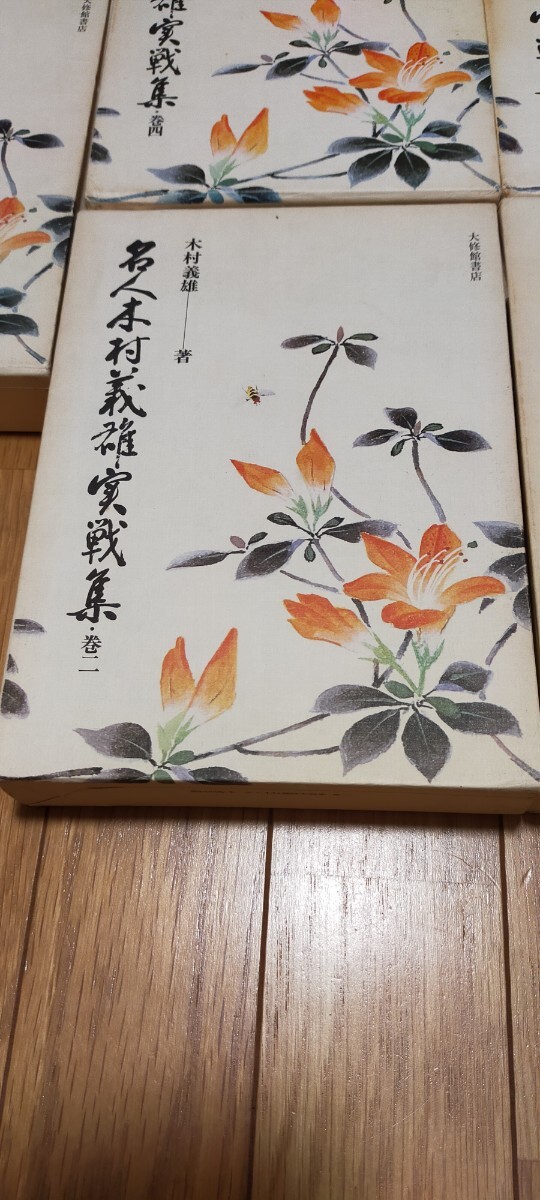 大修館書店
雄実戦集・巻四
大修館書店
木村義雄――著
名人木村義雄実戦集・巻二